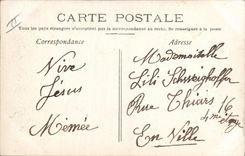 II
CARTE POSTALE
Tous les pays étrangers n'acceptent pas la correspondance au recto. Se renseigner à la poste
Correspondance
Adresse
Vive
Jesus
Mémée
Mademoiselle
Lili
Rue Thiars 16
4me étage
En Ville